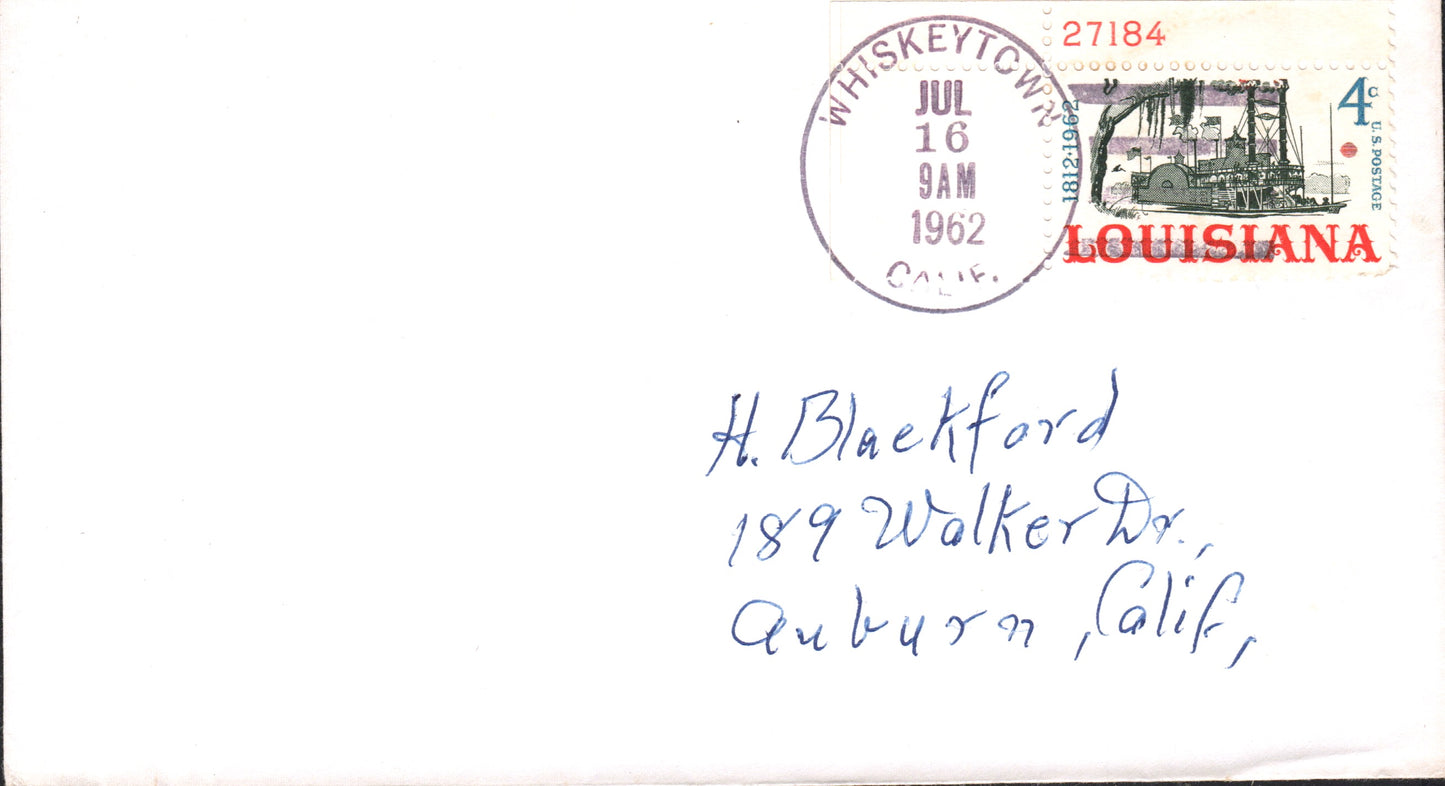 WHISKEYTOWN
JUL
16
9AM
1962
CALIF.
27184
1812·1962
4c
U.S. POSTAGE
LOUISIANA
H. Blackford
189 Walker Dr.,
Auburn, Calif,